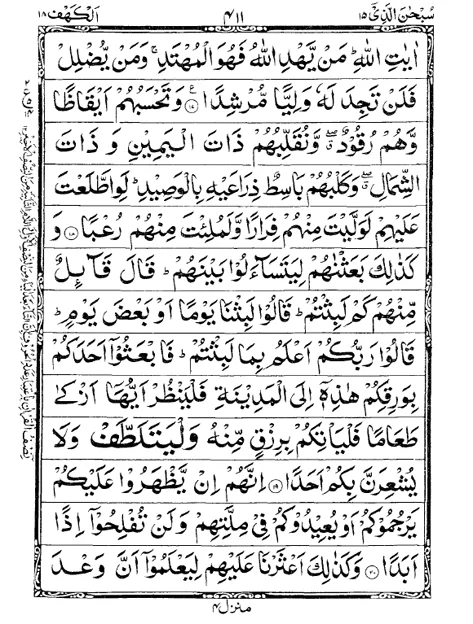 سبحن الذی ١٥
٤١١
الكهف ١٨
اٰیٰتِ اللّٰهِ ؕ مَنْ یَّهْدِ اللّٰهُ فَهُوَ الْمُهْتَدِ ۚ وَمَنْ یُّضْلِلْ
فَلَنْ تَجِدَ لَهٗ وَلِیًّا مُّرْشِدًا ۟﴿۱۷﴾ وَتَحْسَبُهُمْ اَیْقَاظًا
وَّهُمْ رُقُوْدٌ ۖۗ وَّنُقَلِّبُهُمْ ذَاتَ الْیَمِیْنِ وَذَاتَ
الشِّمَالِ ۖۗ وَكَلْبُهُمْ بَاسِطٌ ذِرَاعَیْهِ بِالْوَصِیْدِ ؕ لَوِ اطَّلَعْتَ
عَلَیْهِمْ لَوَلَّیْتَ مِنْهُمْ فِرَارًا وَّلَمُلِئْتَ مِنْهُمْ رُعْبًا ﴿۱۸﴾ وَ
كَذٰلِكَ بَعَثْنٰهُمْ لِیَتَسَآءَلُوْا بَیْنَهُمْ ؕ قَالَ قَآىِٕلٌ
مِّنْهُمْ كَمْ لَبِثْتُمْ ؕ قَالُوْا لَبِثْنَا یَوْمًا اَوْ بَعْضَ یَوْمٍ ؕ
قَالُوْا رَبُّكُمْ اَعْلَمُ بِمَا لَبِثْتُمْ ؕ فَابْعَثُوْۤا اَحَدَكُمْ
بِوَرِقِكُمْ هٰذِهٖۤ اِلَی الْمَدِیْنَةِ فَلْیَنْظُرْ اَیُّهَاۤ اَزْكٰی
طَعَامًا فَلْیَاْتِكُمْ بِرِزْقٍ مِّنْهُ وَلْیَتَلَطَّفْ وَلَا
یُشْعِرَنَّ بِكُمْ اَحَدًا ﴿۱۹﴾ اِنَّهُمْ اِنْ یَّظْهَرُوْا عَلَیْكُمْ
یَرْجُمُوْكُمْ اَوْ یُعِیْدُوْكُمْ فِیْ مِلَّتِهِمْ وَلَنْ تُفْلِحُوْۤا اِذًا
اَبَدًا ﴿۲۰﴾ وَكَذٰلِكَ اَعْثَرْنَا عَلَیْهِمْ لِیَعْلَمُوْۤا اَنَّ وَعْدَ
منزل ٤